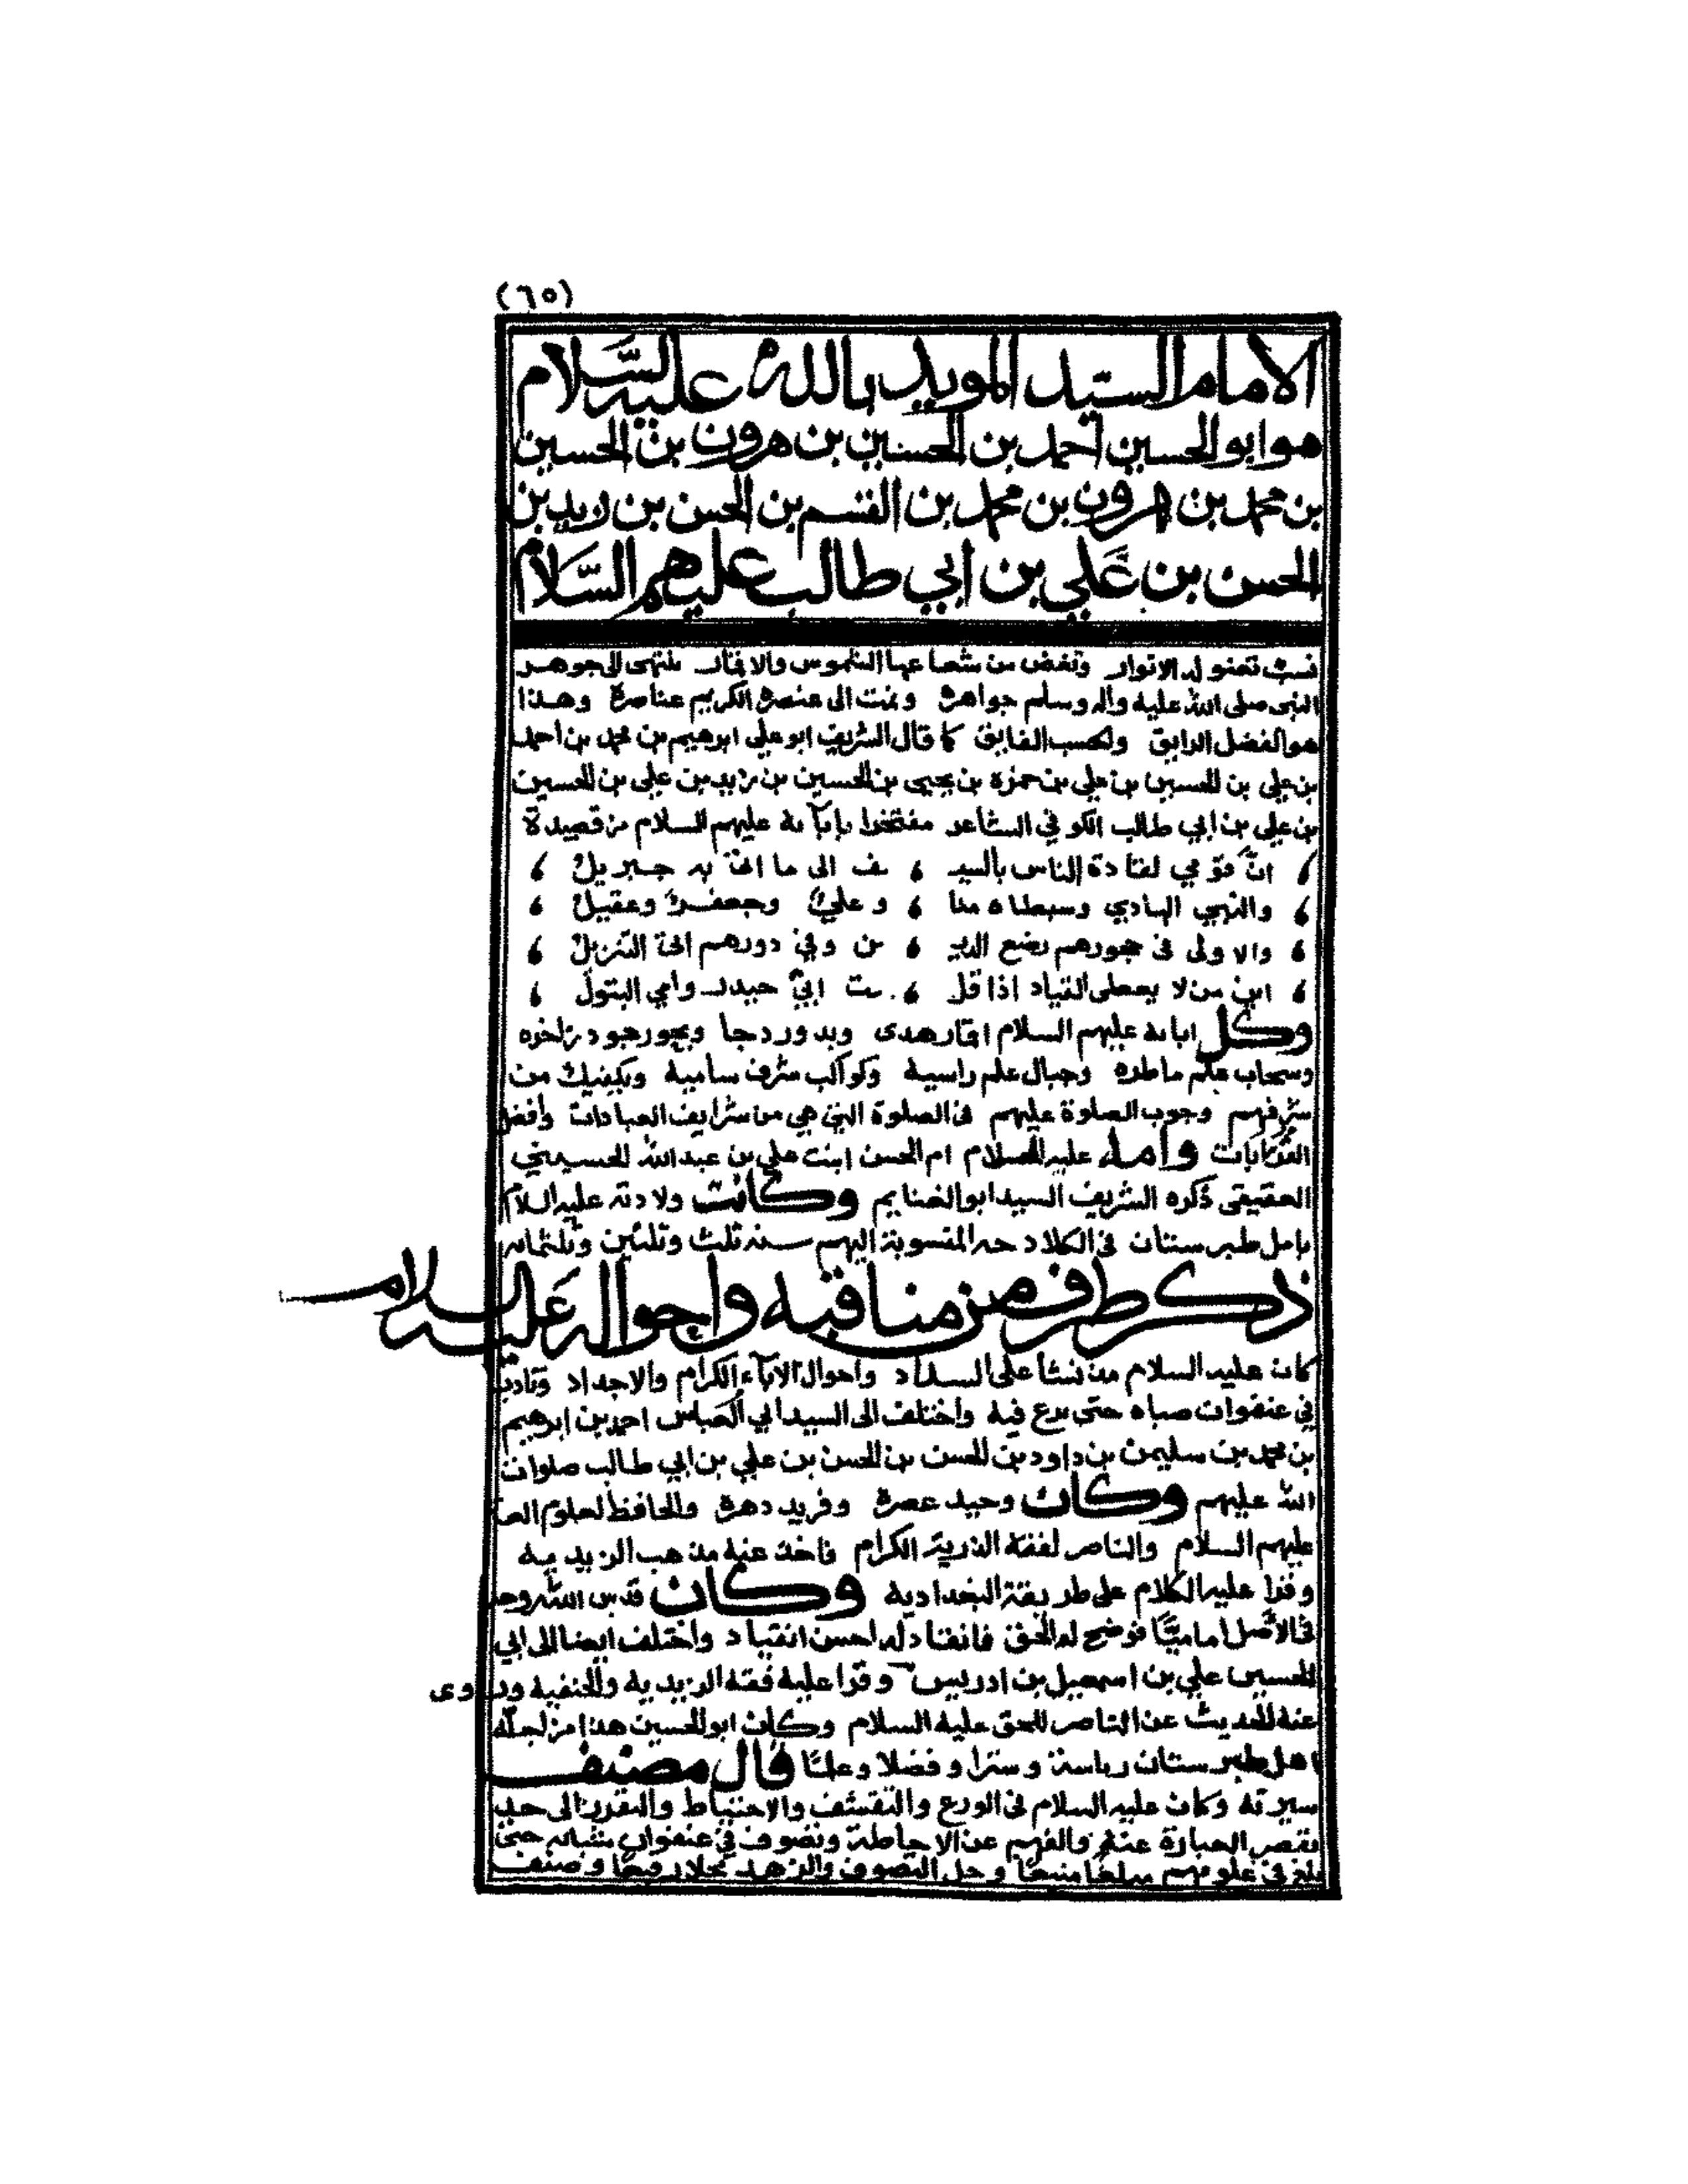 (٦٥)
الامام السيد المويد بالله عليه السلام
هو ابو الحسين احمد بن الحسين بن هرون بن الحسين
بن محمد بن هرون بن محمد بن القسم بن الحسن بن زيد بن
الحسن بن علي بن ابي طالب عليهم السلام
نسب تعنو له الانوار وتغض من شعاعها الشموس والاقمار ينتهى الى جوهر
النبى صلى الله عليه واله وسلم جواهرة ونمت الى عنصرة الكريم عناصرة وهذا
هو الفضل الرايق والحسب الفايق كما قال الشريف ابو على ابرهيم بن محمد بن احمد
بن على بن الحسين بن علي بن حمزه بن يحيى بن الحسين بن زيد بن على بن الحسين
بن على بن ابي طالب الكوفي الشاعر مفتخرا بابآئه عليهم السلام من قصيدة
انّ قومي لقادة الناس بالسيـ ـف الى ما اتى به جبريل
والنبي الهادي وسبطاه منا وعليٌ وجعفرٌ وعقيلٌ
والاولى فى حجورهم رضع الديـ ـن وفي دورهم اتى التنزيل
ابن من لا يعطى القياد اذا قلـ ـت ابيّ حيدر وامي البتول
وكل ابائه عليهم السلام اقمار هدى وبدور دجا وبحور جود زاخره
وسحاب علم ماطره وجبال علم راسية وكواكب شرف سامية ويكفيك من
شرفهم وجوب الصلوة عليهم فى الصلوة التي هي من شرايف العبادات وافضل
القربات وامه عليه السلام ام الحسن ابنت علي بن عبدالله الحسيني
العقيقى ذكره الشريف السيد ابو الغنايم وكانت ولادته عليه السلام
بامل طبرستان فى الكلاد حه المنسوبة اليهم سنه ثلث وثلثين وثلثمائه
ذكر طرف من مناقبه واحواله عليه السلام
كان عليه السلام من نشا على السداد واحوال الآباء الكرام والاجداد وتادب
في عنفوان صباه حتى برع فيه واختلف الى السيد ابي العباس احمد بن ابرهيم
بن محمد بن سليمن بن داود بن الحسن بن الحسن بن علي بن ابي طالب صلوات
الله عليهم وكان وحيد عصرة وفريد دهرة والحافظ لعلوم العترة
عليهم السلام والناصر لفقه الذرية الكرام فاخذ عنه مذهب الزيديه
وقرا عليه الكلام على طريقة البغدادية وكان قدس الله روحه
فى الاصل اماميًا فوضح له الحق فانقاد له احسن انقياد واختلف ايضا الى ابي
الحسين علي بن اسمعيل بن ادريس وقرا عليه فقه الزيديه والحنفيه وروى
عنه الحديث عن الناصر للحق عليه السلام وكان ابو الحسين هذا من اجلة
اهل طبرستان رياسة وسترا وفضلا وعلمًا قال مصنف
سيرته وكان عليه السلام فى الورع والتقشف والاحتياط والتقزز الى حد
تقصر العبارة عنه والفهم عن الاحاطة وتصوف في عنفوان شبابه حتى
بلغ فى علومهم مبلغًا منيعًا وحل التصوف والزهد محلا رفيعًا وصنف